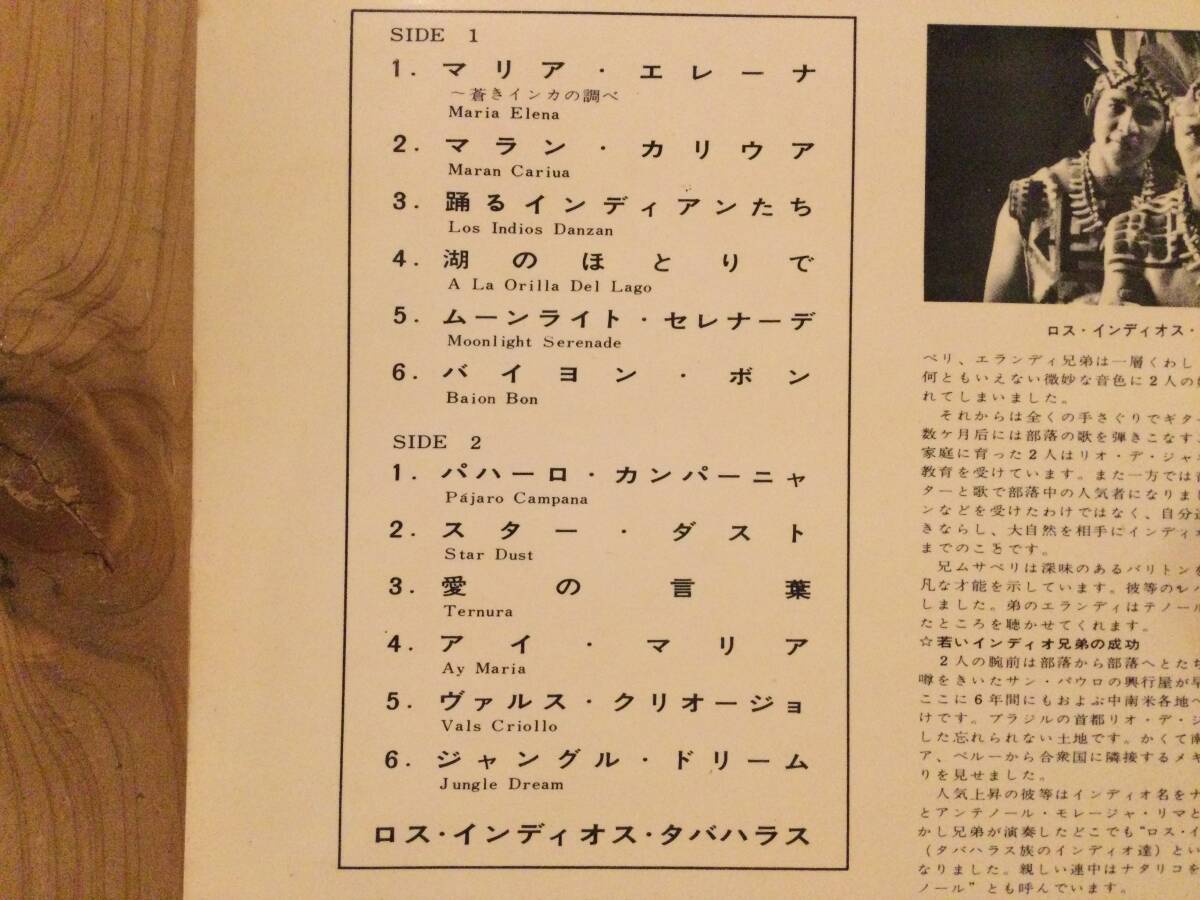 SIDE 1
1. マリア・エレーナ
～蒼きインカの調べ
Maria Elena
2. マラン・カリウア
Maran Cariua
3. 踊るインディアンたち
Los Indios Danzan
4. 湖のほとりで
A La Orilla Del Lago
5. ムーンライト・セレナーデ
Moonlight Serenade
6. バイヨン・ボン
Baion Bon
SIDE 2
1. パハーロ・カンパーニャ
Pájaro Campana
2. スター・ダスト
Star Dust
3. 愛の言葉
Ternura
4. アイ・マリア
Ay Maria
5. ヴァルス・クリオージョ
Vals Criollo
6. ジャングル・ドリーム
Jungle Dream
ロス・インディオス・タバハラス
ロス・インディオス・
ペリ、エランディ兄弟は一層くわし
何ともいえない微妙な音色に2人の
れてしまいました。
それからは全くの手さぐりでギタ
数ケ月后には部落の歌を弾きこなす
家庭に育った2人はリオ・デ・ジャ
教育を受けています。また一方では
ターと歌で部落中の人気者になりま
ンなどを受けたわけではなく、自分
きならし、大自然を相手にインディオ
までのことです。
兄ムサペリは深味のあるバリトンを
凡な才能を示しています。彼等のレパ
しました。弟のエランディはテノール
たところを聴かせてくれます。
☆若いインディオ兄弟の成功
2人の腕前は部落から部落へとたち
噂をきいたサン・パウロの興行屋が早
ここに6年間にもおよぶ中南米各地へ
けです。ブラジルの首都リオ・デ・ジ
した忘れられない土地です。かくて南
ア、ペルーから合衆国に隣接するメキ
りを見せました。
人気上昇の彼等はインディオ名をナ
とアンテノール・モレージャ・リマと
かし兄弟が演奏したどこでも“ロス・イ
（タバハラス族のインディオ達）とい
なりました。親しい連中はナタリコを
ノール”とも呼んでいます。